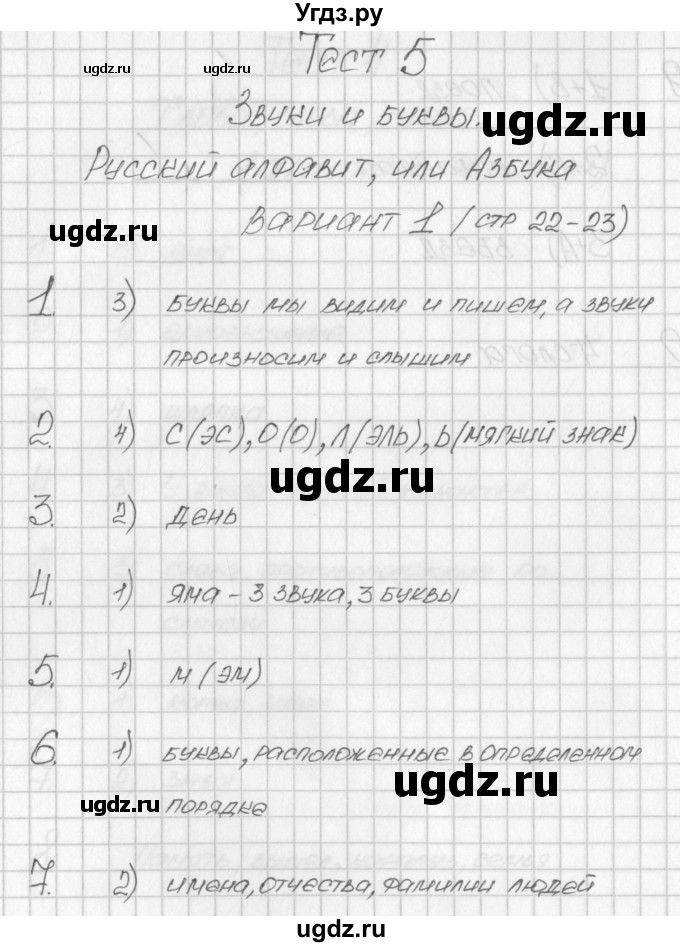 Угдз.ру
Тест 5
ugdz.ru
ugdz.ru
Звуки и буквы.
ugdz.ru
Русский алфавит, или Азбука
ugdz.ru
ugdz.ru
Вариант 1 (стр 22-23)
1. 3) буквы мы видим и пишем, а звуки
произносим и слышим
ugdz.ru
2. 4) С(эс), О(о), Л(эль), Ь(мягкий знак)
ugdz.ru
3. 2) день
4. 1) яма - 3 звука, 3 буквы
5. 1) м (эм)
ugdz.ru
6. 1) буквы, расположенные в определенном
ugdz.ru
ugdz.ru
порядке
7. 2) имена, отчества, фамилии людей
ugdz.ru